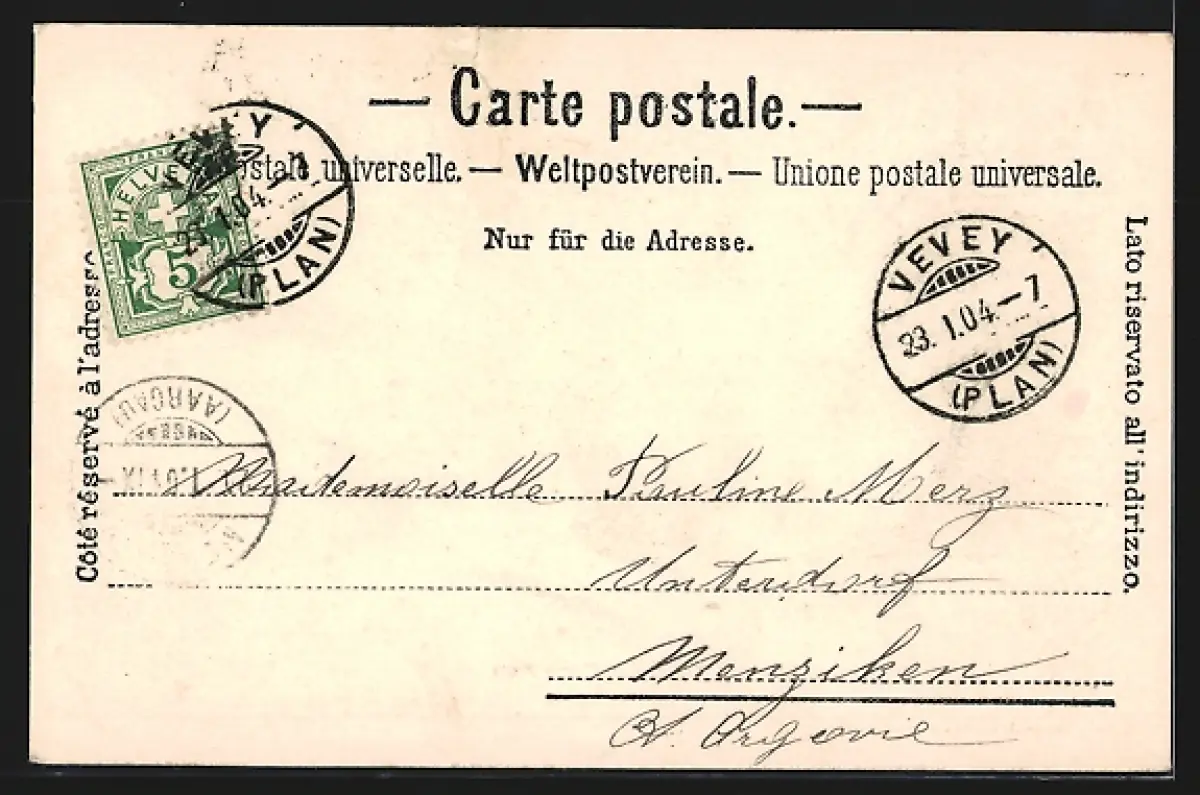 — Carte postale. —
postale universelle. — Weltpostverein. — Unione postale universale.
Nur für die Adresse.
Côté réservé à l'adresse
Lato riservato all' indirizzo.
FRANCO
HELVETIA
5
VEVEY
23.1.04.
(PLAN)
VEVEY
23.1.04.-7
(PLAN)
(AARGAU)
Mademoiselle Pauline Merz
Unterdorf
Menziken
Ct. Argovie